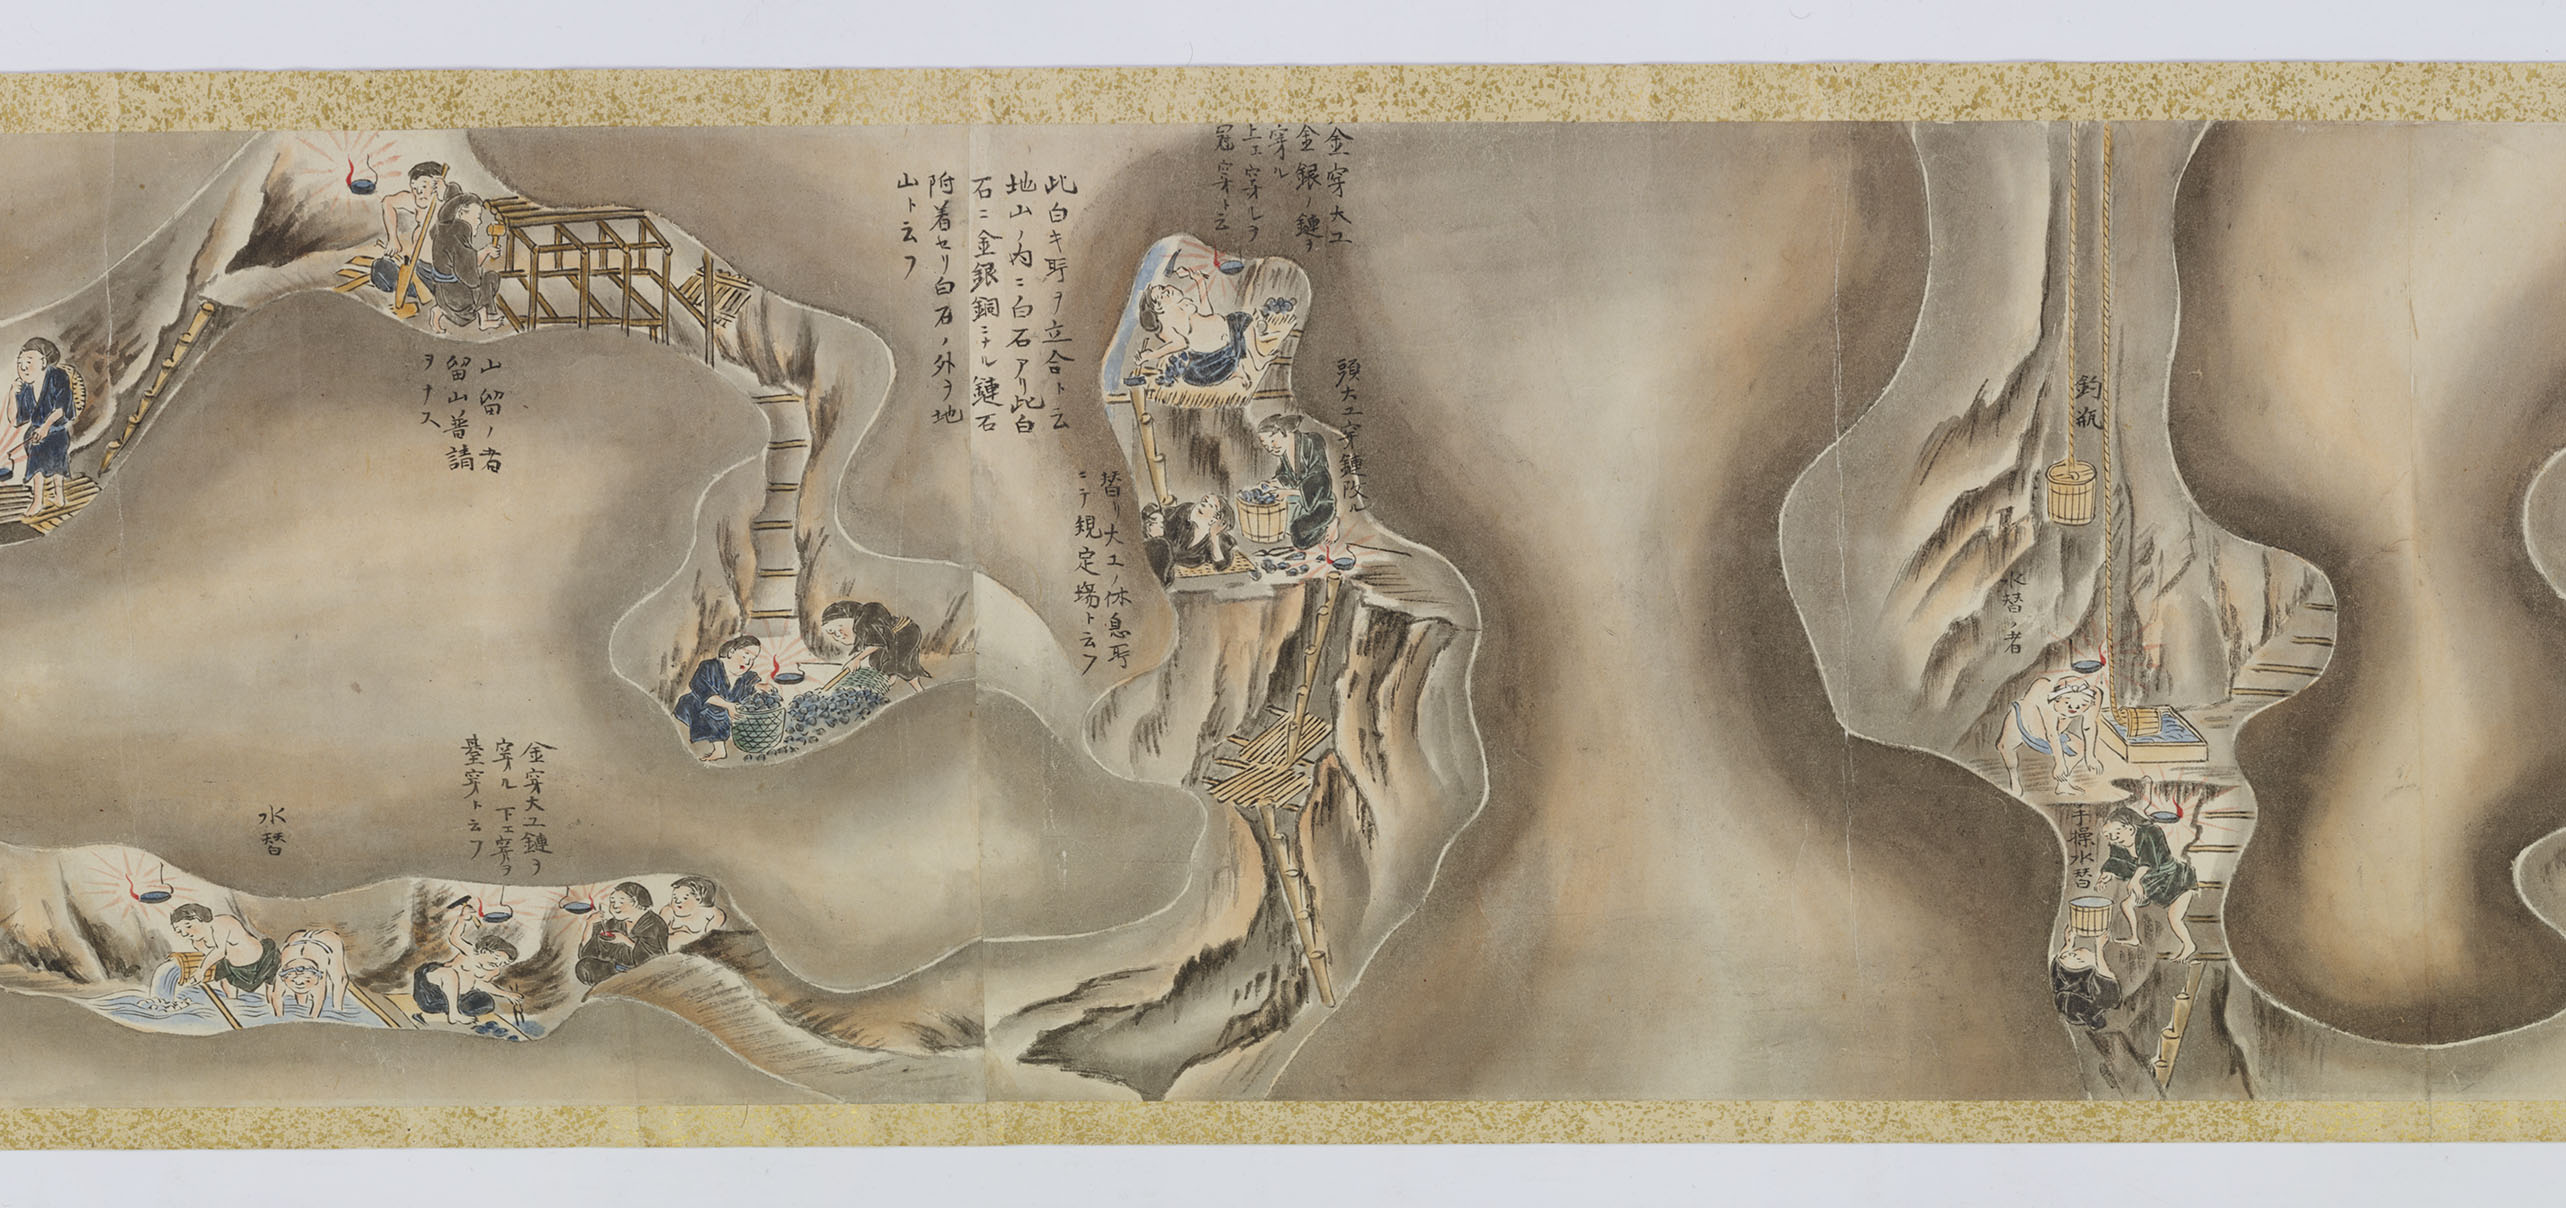 釣瓶
水替ノ者
手操水替
金穿大工
金銀ノ鏈ヲ
穿ル
上エ穿レヲ
冠穿ト云
頭大工穿鏈改ル
替リ大工ノ休息所
ニテ規定場ト云フ
此白キ所ヲ立合ト云
地山ノ内ニ白石アリ此白
石ニ金銀銅ニナル鏈石
附着セリ白石ノ外ヲ地
山ト云フ
山留ノ者
留山普請
ヲナス
金穿大工鏈ヲ
穿ル下エ穿ヲ
臺穿ト云フ
水替